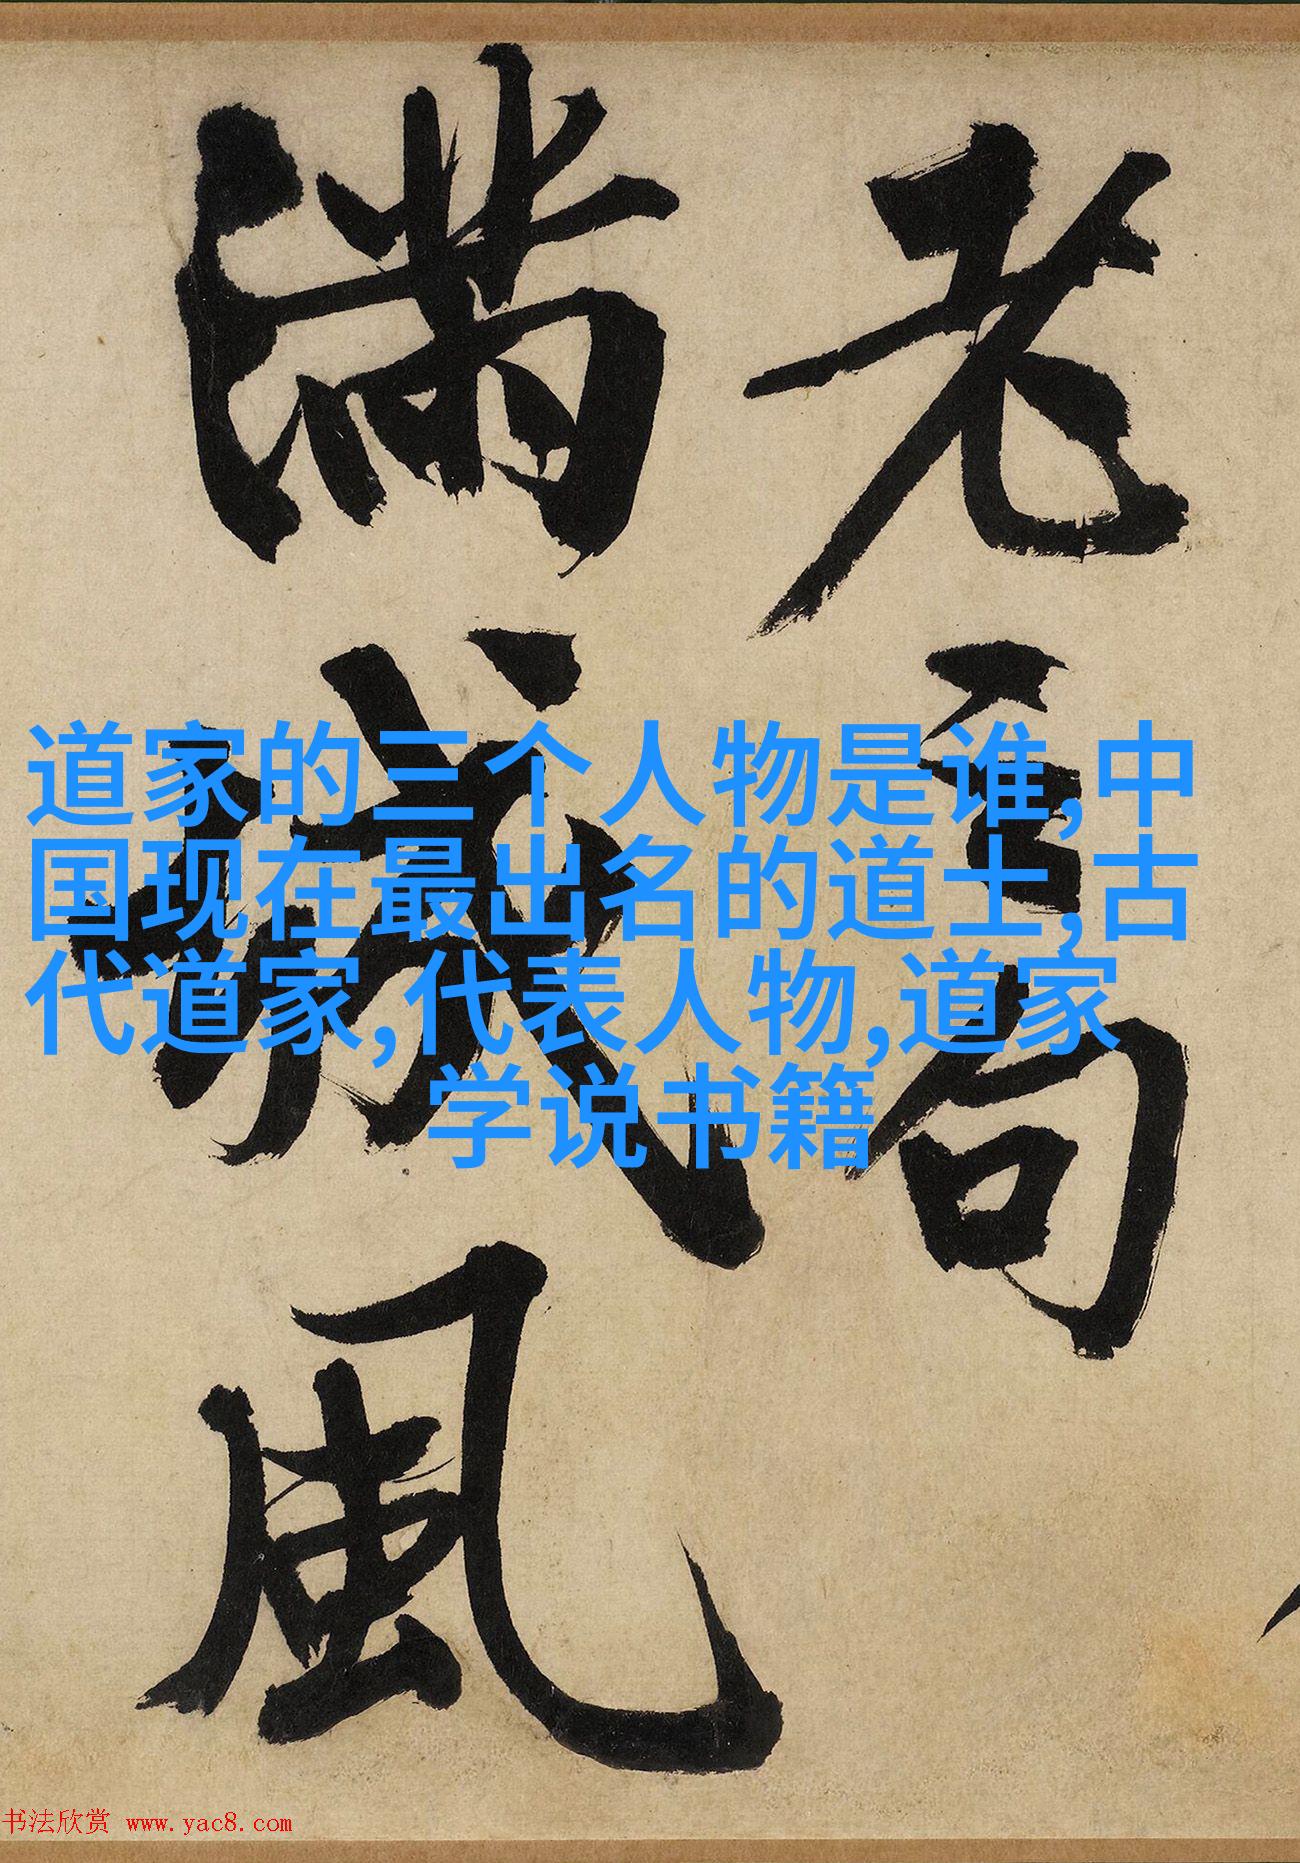 老句
滿城風
道家的三个人物是谁,中
国现在最出名的道士,古
代道家,代表人物,道家
学说书籍
书法欣赏 www.yac8.com